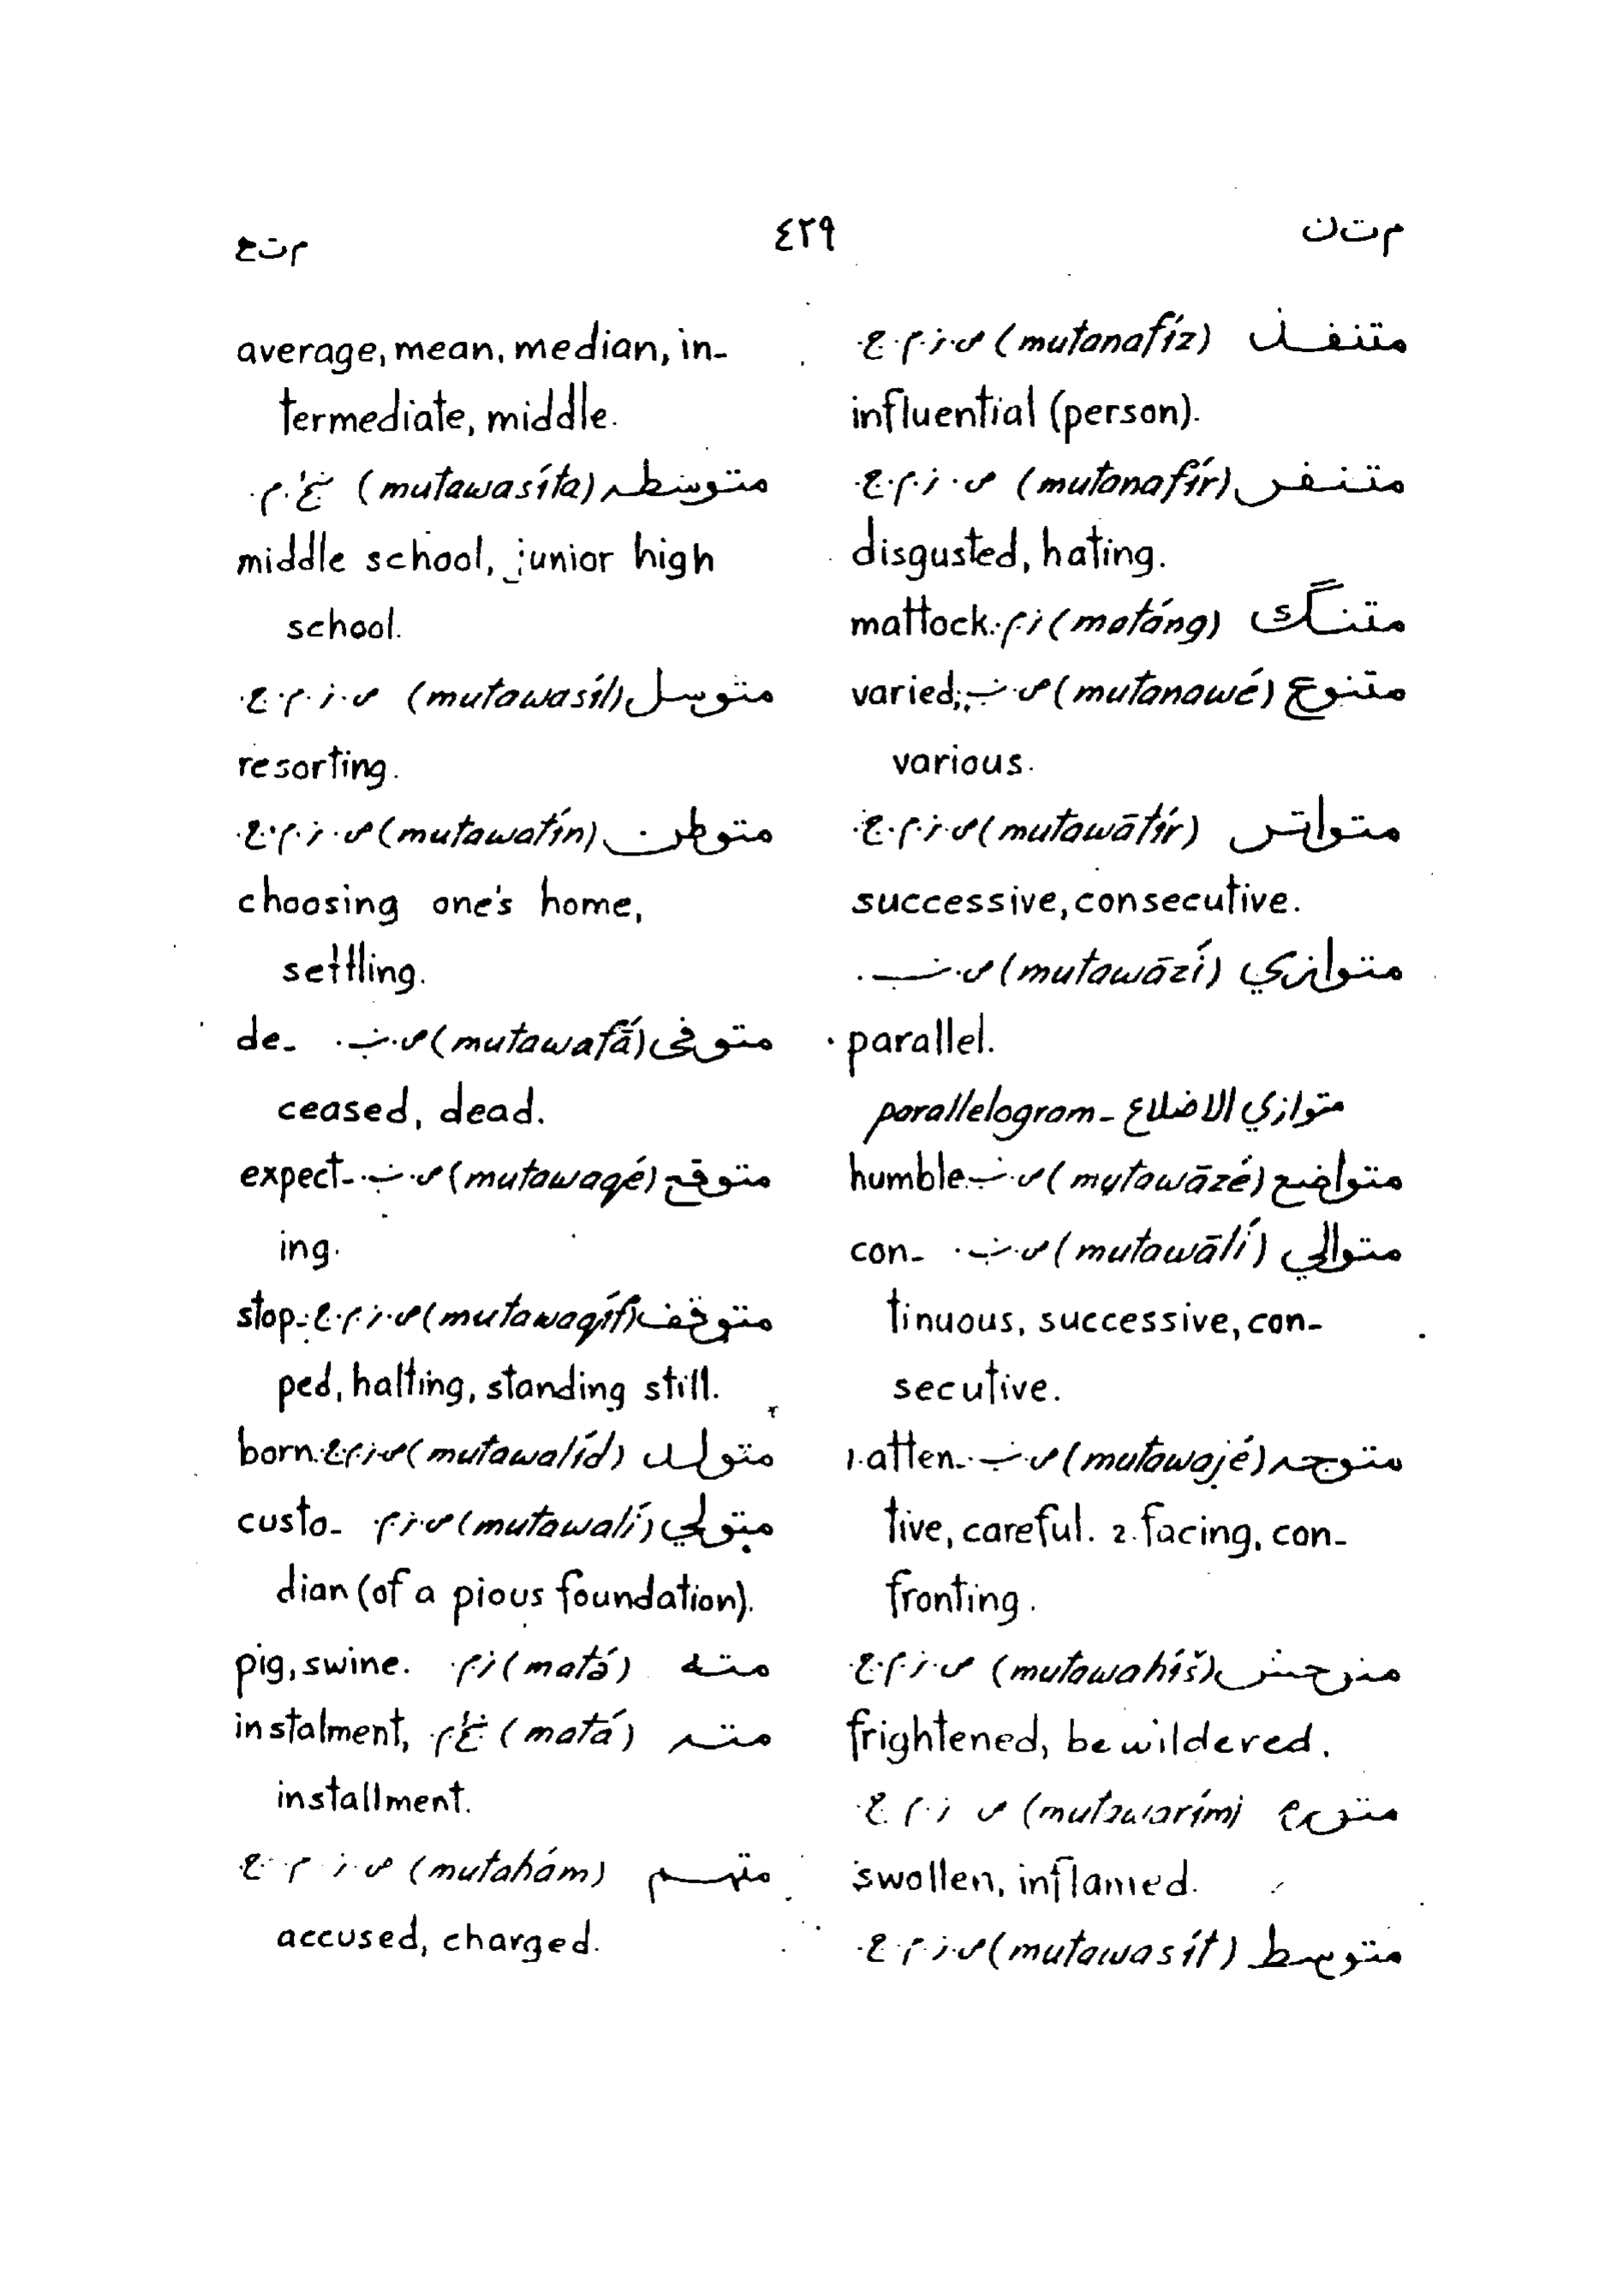 متن ٤٢٩ متع
متنفذ (mutanafíz) ص.ز.م.ع.
influential (person).
متنفر (mutanafír) ص.ز.م.ع.
disgusted, hating.
متنګ (matáng) ز.م. mattock.
متنوع (mutanawé) ص.ب. varied;
various.
متواتر (mutawātír) ص.ز.م.ع.
successive, consecutive.
متوازي (mutawāzí) ص.ب.
parallel.
متوازي الاضلاع - parallelogram
متواضع (mutawāzé) ص.ب. humble
متوالي (mutawālí) ص.ب. con-
tinuous, successive, con-
secutive.
متوجه (mutawajé) ص.ب. 1. atten-
tive, careful. 2. facing, con-
fronting.
متوحش (mutawahíš) ص.ز.م.ع.
frightened, bewildered.
متورم (mutawarím) ص.ز.م.ع.
swollen, inflamed.
متوسط (mutawasít) ص.ز.م.ع.
average, mean, median, in-
termediate, middle.
متوسطه (mutawasíta) م.
middle school, junior high
school.
متوسل (mutawasíl) ص.ز.م.ع.
resorting.
متوطن (mutawatín) ص.ز.م.ع.
choosing one's home,
settling.
متوفی (mutawafā́) ص.ب. de-
ceased, dead.
متوقع (mutawaqé) ص.ب. expect-
ing.
متوقف (mutawaqíf) ص.ز.م.ع. stop-
ped, halting, standing still.
متولد (mutawalíd) ص.ز.م.ع. born.
متولي (mutawalí) ص.ز.م. custo-
dian (of a pious foundation).
مته (matá) ز.م. pig, swine.
مته (matá) م. instalment,
installment.
متهم (mutahám) ص.ز.م.ع.
accused, charged.